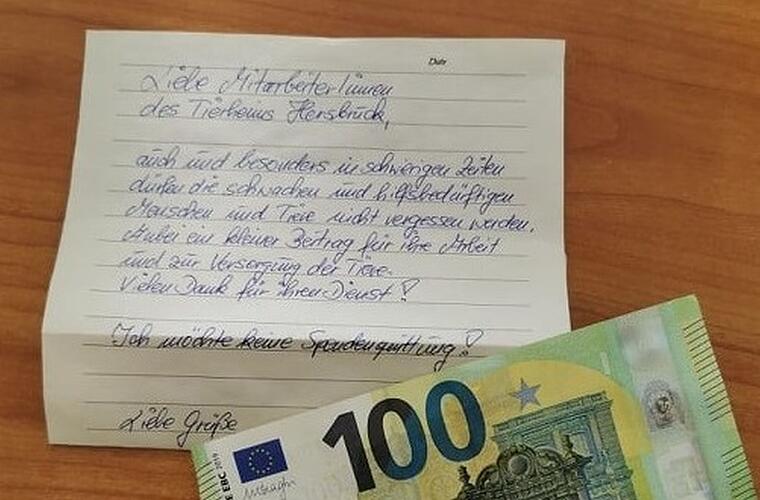 Date
Liebe MitarbeiterInnen
des Tierheims Hersbruck,
auch und besonders in schwierigen Zeiten
dürfen die schwachen und hilfsbedürftigen
Menschen und Tiere nicht vergessen werden.
Anbei ein kleiner Beitrag für ihre Arbeit
und zur Versorgung der Tiere.
Vielen Dank für ihren Dienst!
Ich möchte keine Spendenquittung!
Liebe Grüße
100
EBC 2019